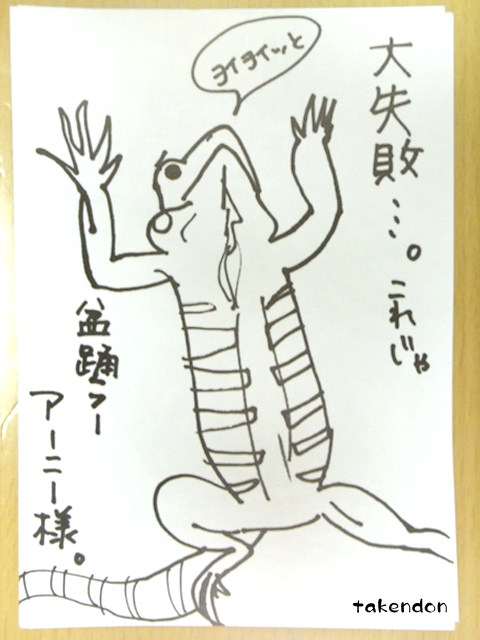 ヨイヨイッと
大失敗…。これじゃ
盆踊ラー
アーニー様。
takendon